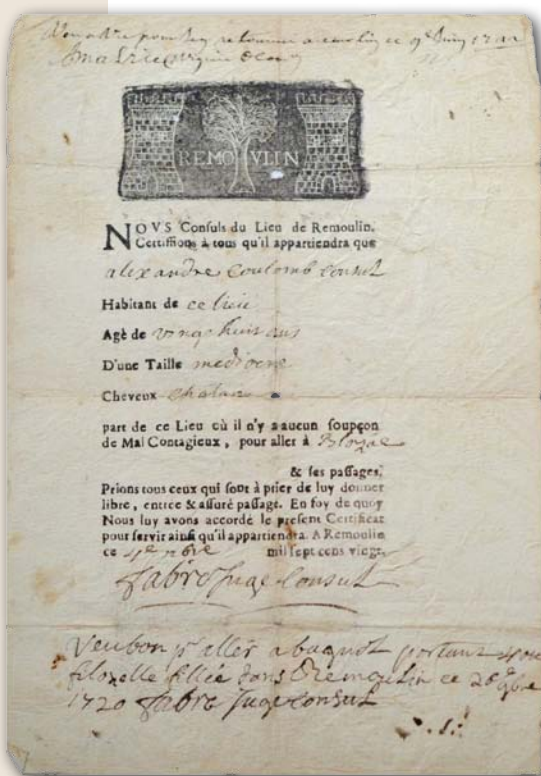 REMOVLIN
NOVS Consuls du Lieu de Remoulin.
Certifions à tous qu'il appartiendra que
alexandre Coulomb Consul
Habitant de ce lieu
Agè de vingt huit ans
D'une Taille mediocre
Cheveux Chatan
part de ce Lieu où il n'y a aucun soupçon
de Mal Contagieux, pour aller à
& ses passages,
Prions tous ceux qui sont à prier de luy donner
libre, entrée & assuré passage. En foy de quoy
Nous luy avons accordé le present Certificat
pour servir ainsi qu'il appartiendra. A Remoulin
ce 4e mil sept cens vingt.
fabre Juge Consul
Veu bon pr aller a portant
filozelle Remoulin ce 26
1720 fabre Juge Consul